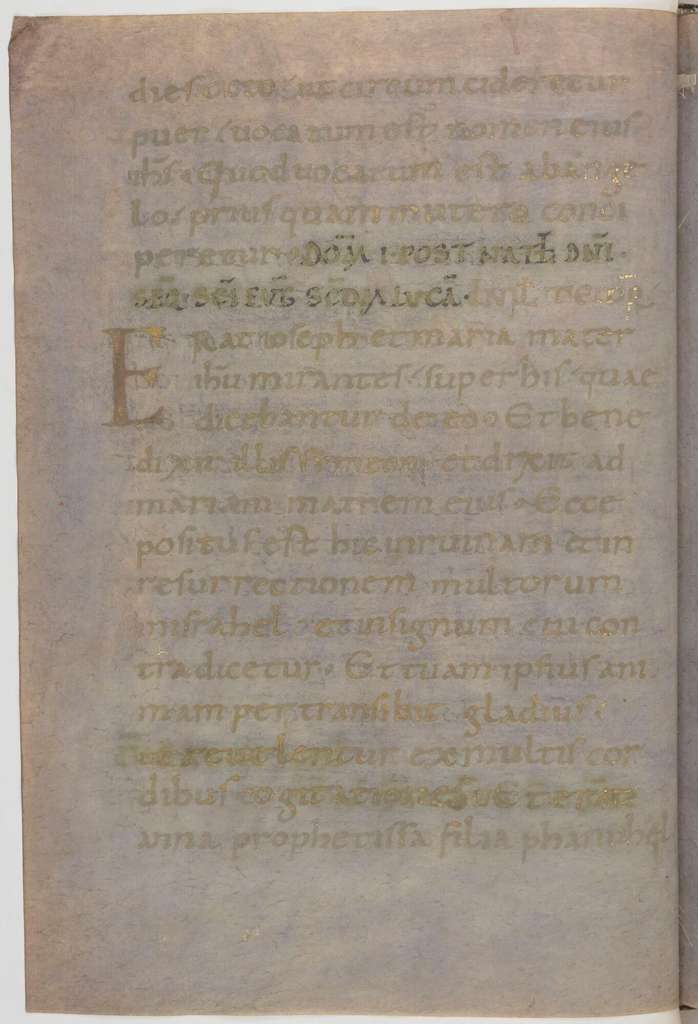 dies octo ut circumcideretur
puer uocatum est nomen eius
ihs · Quod uocatum est abange
lo priusquam inutero conci
peretur · DOM I POST NATL DNI ·
SEQ SCI EUG SCDM LUCA ·
Erat ioseph et maria mater
ihu mirantes super his quae
dicebantur deeo · Et bene
dixit illis simeon et dixit ad
mariam matrem eius · Ecce
positus est hic inruinam et in
resurrectionem multorum
inisrahel · et insignum cui con
tradicetur · Et tuam ipsius ani
mam pertransibit gladius
ut reuelentur exmultis cor
dibus cogitationes · Et erat
anna prophetissa filia phanuhel